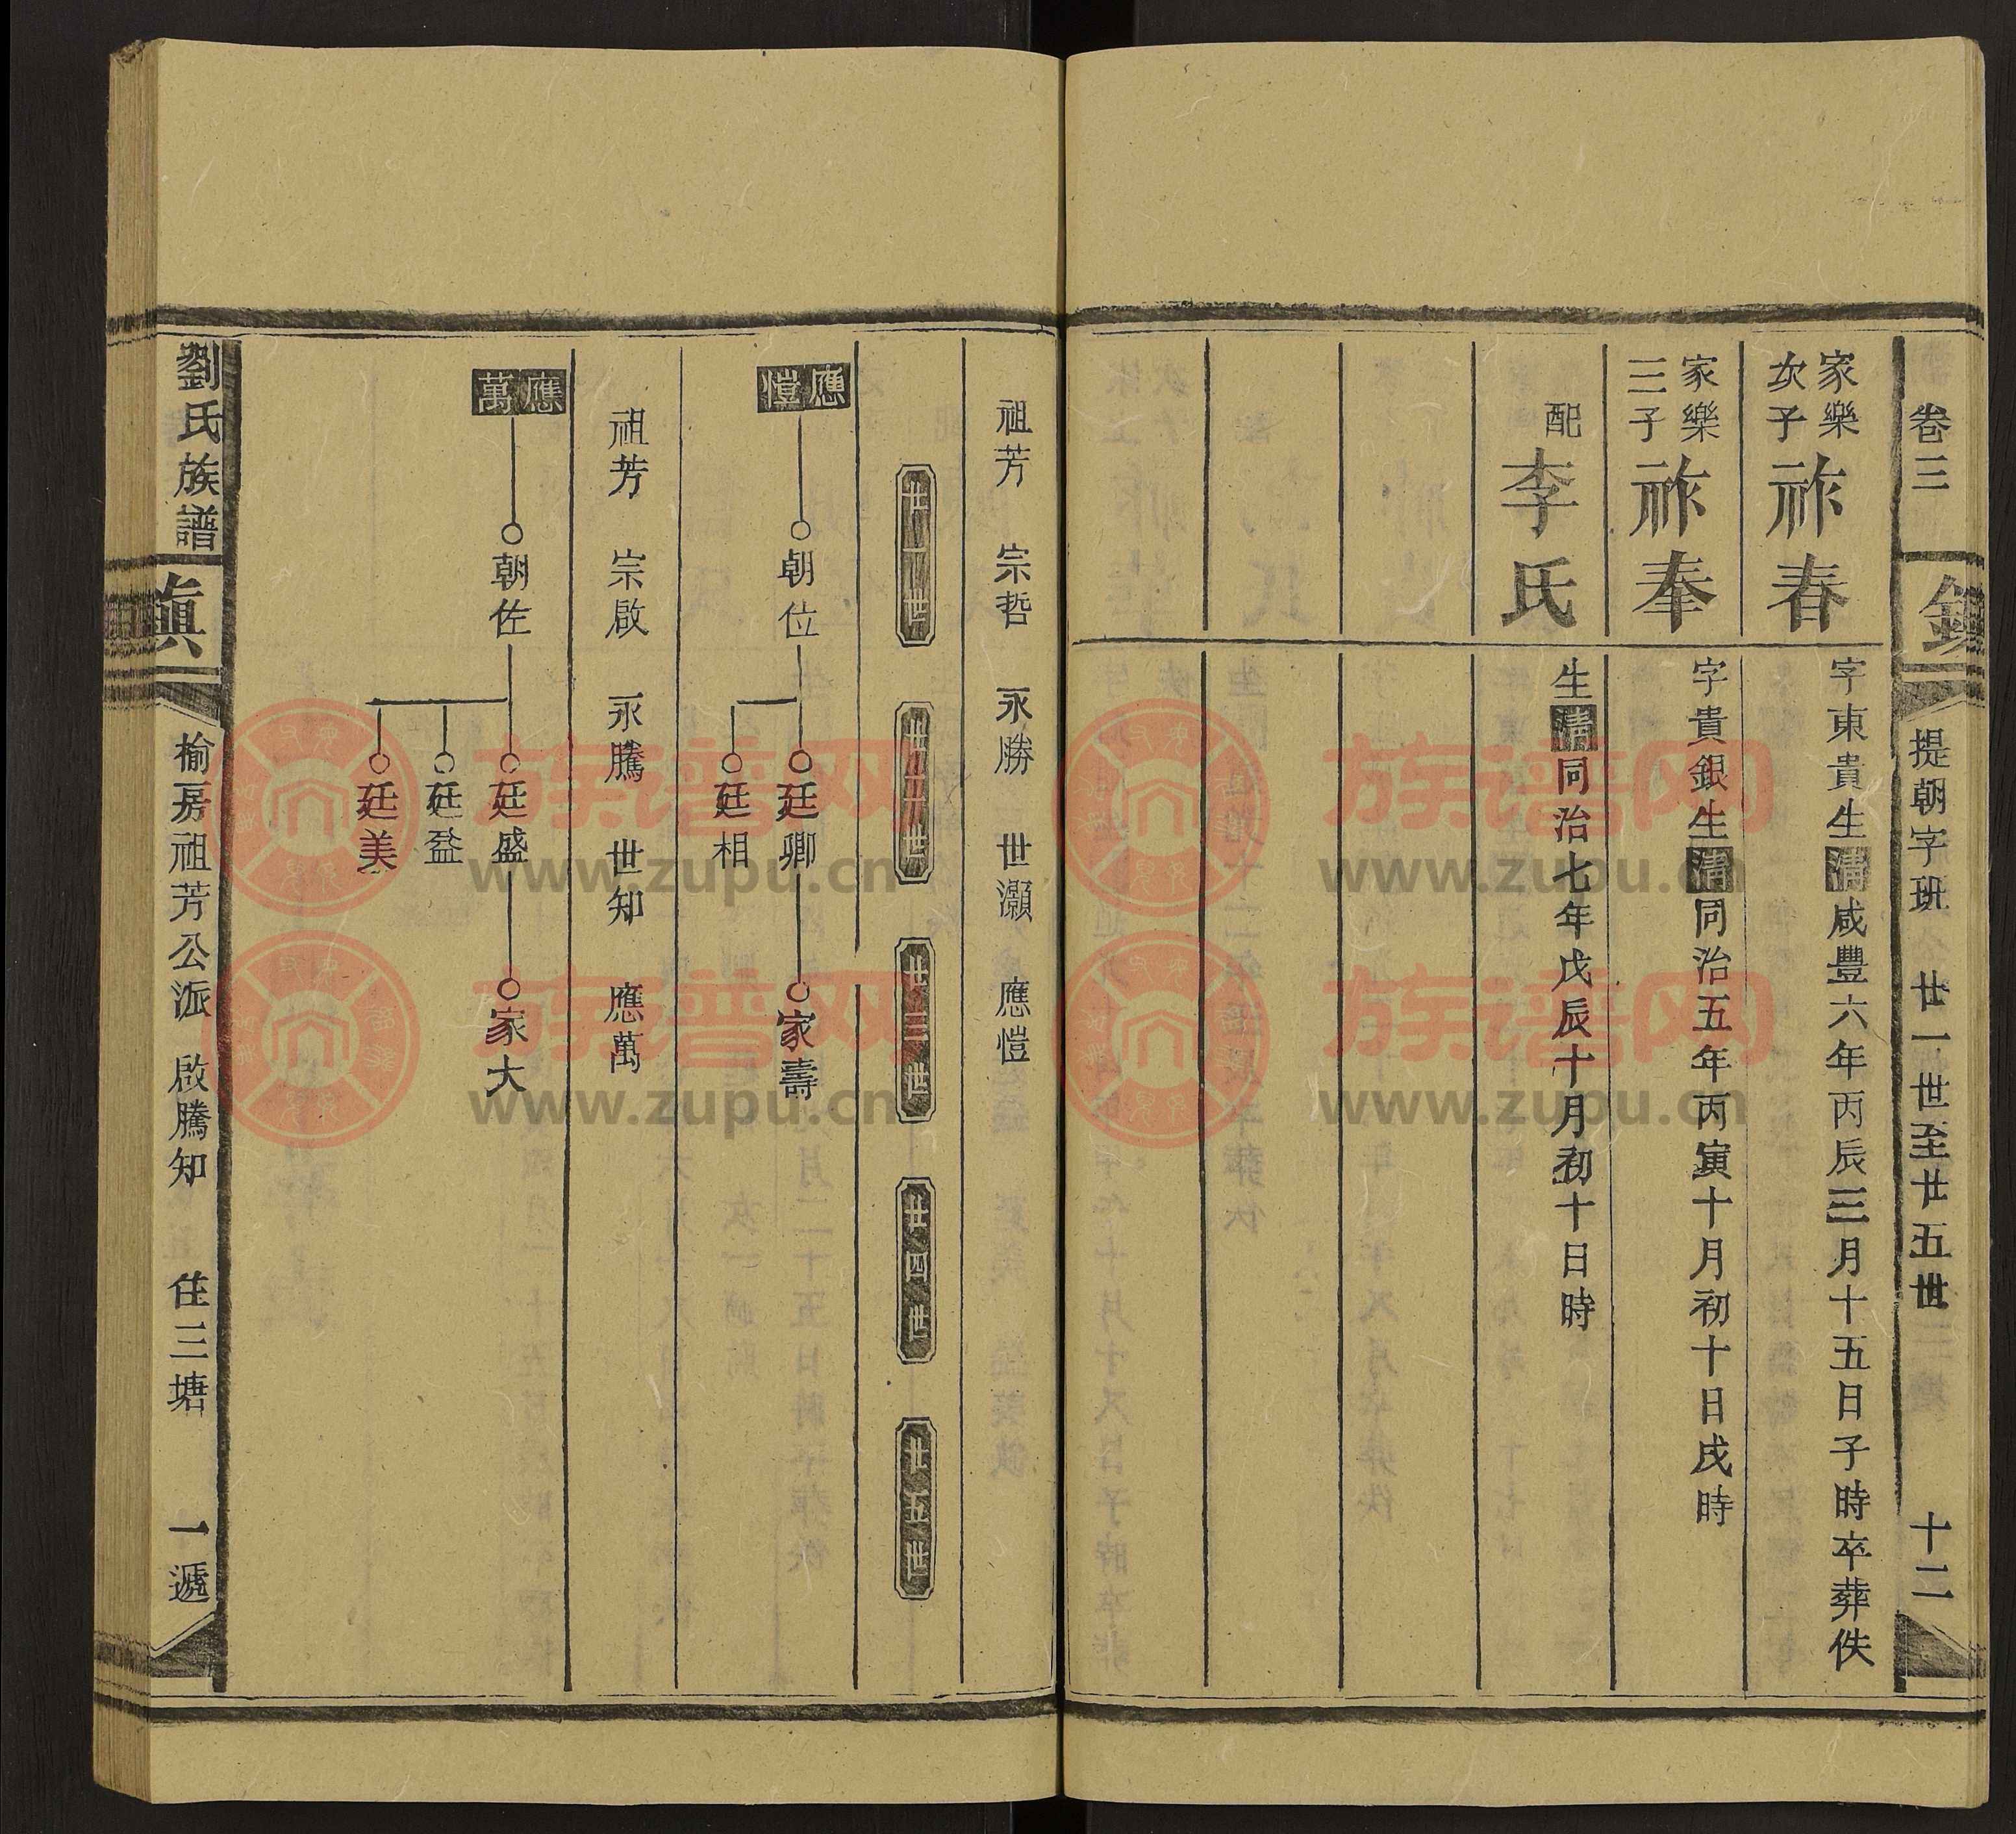 卷三
提朝字班　廿一世至廿五世　十二
家樂次子祚春
字東貴生清咸豐六年丙辰三月十五日子時卒葬佚
家樂三子祚奉
字貴銀生清同治五年丙寅十月初十日戌時
配李氏
生清同治七年戊辰十月初十日時
祖芳　宗哲　永勝　世灝　應愷
廿一世　廿二世　廿三世　廿四世　廿五世
應愷　朝位　廷卿　家壽
廷相
祖芳　宗啟　永騰　世知　應萬
應萬　朝佐　廷盛　家大
廷益
廷美
劉氏族譜
榆房祖芳公派　啟騰知　住三塘　一遞
族谱网
www.zupu.cn
族谱网
www.zupu.cn
族谱网
www.zupu.cn
族谱网
www.zupu.cn